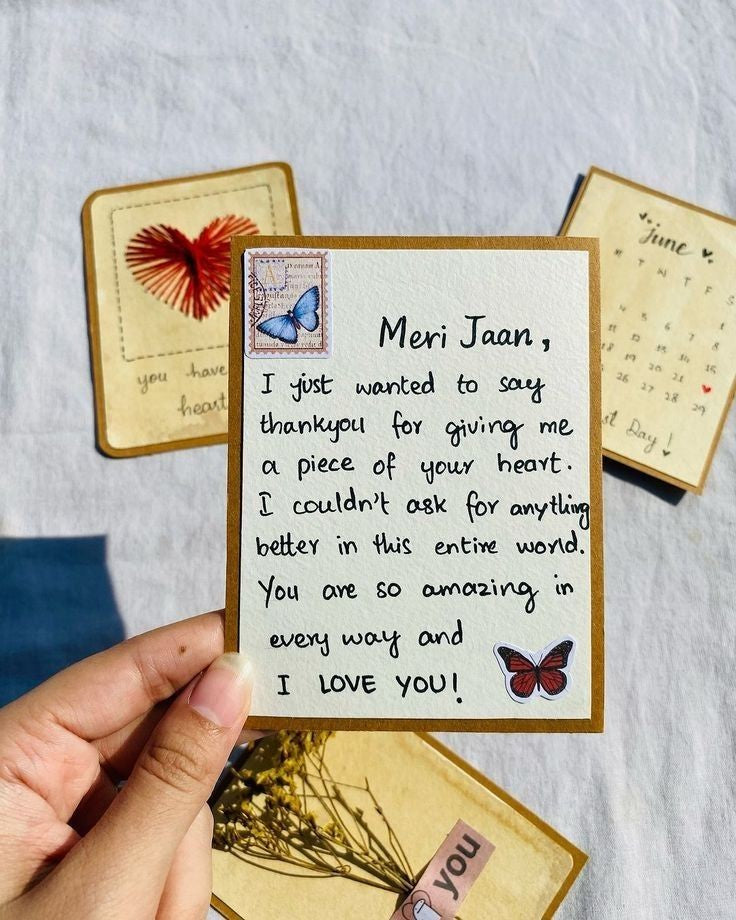 Meri Jaan,
I just wanted to say
thankyou for giving me
a piece of your heart.
I couldn't ask for anything
better in this entire world.
You are so amazing in
every way and
I LOVE YOU!
you have
heart
June
M T W T F S
1
4 5 6 7 8
11 12 13 14 15
18 19 20 21
25 26 27 28 29
st Day!
you